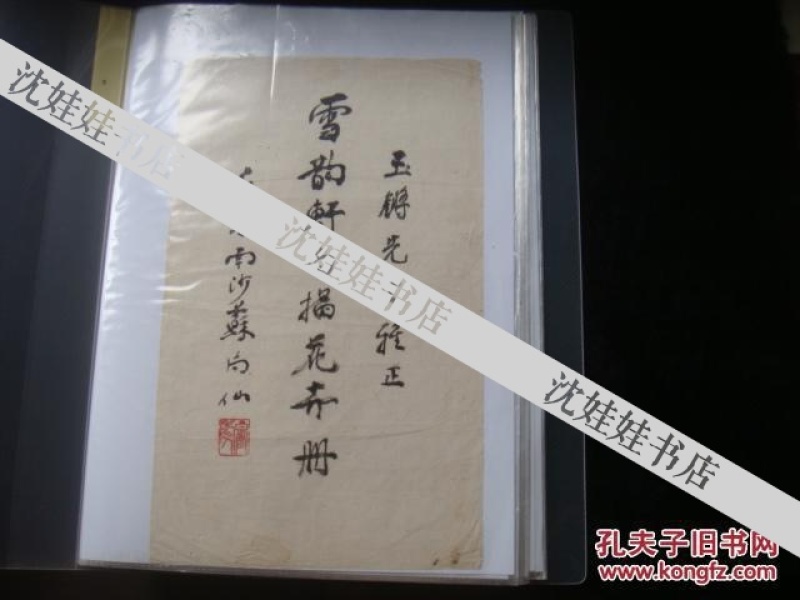 玉鏘先 雅正
雪韵軒 花卉册
南沙蘇 仙
沈娃娃书店
沈娃娃书店
沈娃娃书店
孔夫子旧书网
www.kongfz.com